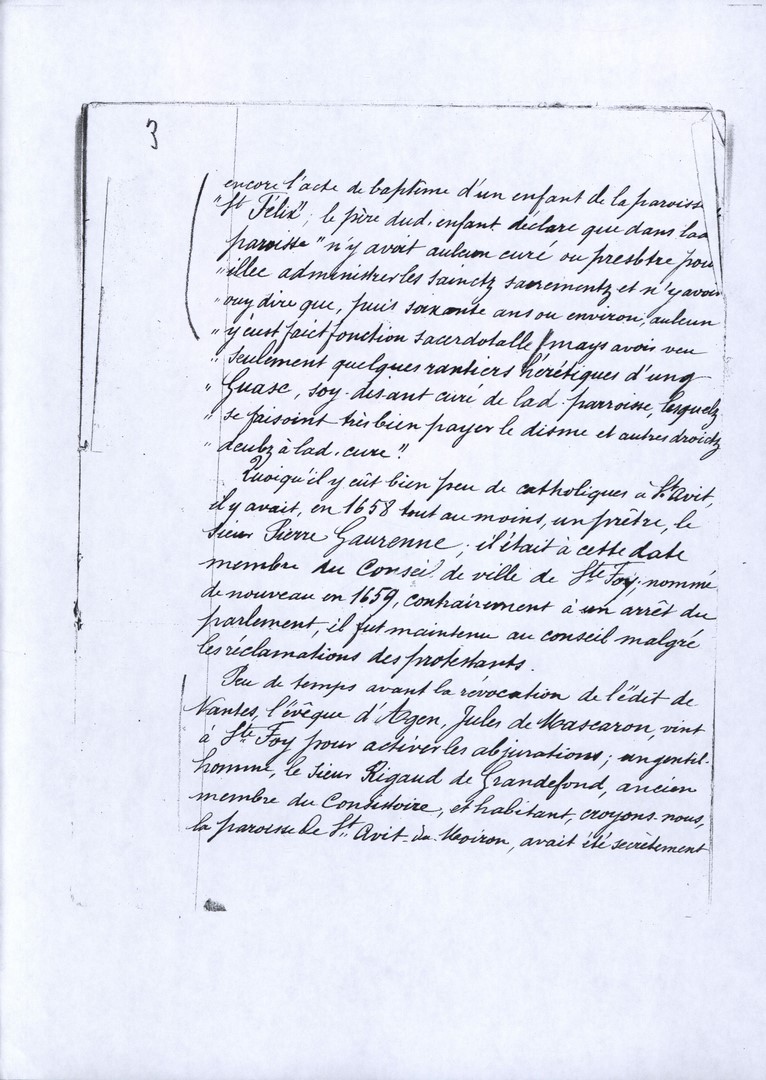 3
encore l'acte de baptême d'un enfant de la paroisse
"St Félix"; le père dud. enfant déclare que dans lad
paroisse "n'y avoit aulcun curé ou presbtre pou
"illec administrer les sainctz sacrementz et n'y avoir
"ouy dire que, puis soixante ans ou environ, aulcun
"y eust faict fonction sacerdotalle mays avois veu
"seulement quelques rantiers hérétiques d'ung
"Guasc, soy-disant curé de lad. parroisse, lesquelz
"se faisoint très bien payer le disme et autres droictz
"deubz à lad. cure".
Quoiqu'il y eût bien peu de catholiques à St Avit,
il y avait, en 1658 tout au moins, un prêtre, le
sieur Pierre Gaurenne; il était à cette date
membre du Conseil de ville de Ste Foy; nommé
de nouveau en 1659, contrairement à un arrêt du
parlement, il fut maintenu au conseil malgré
les réclamations des protestants.
Peu de temps avant la révocation de l'édit de
Nantes, l'évêque d'Agen, Jules de Mascaron, vint
à Ste Foy pour activer les abjurations; un gentil-
homme, le sieur Rigaud de Grandefond, ancien
membre du Consistoire, et habitant, croyons-nous,
la paroisse de St Avit-du-Moiron, avait été secrètement